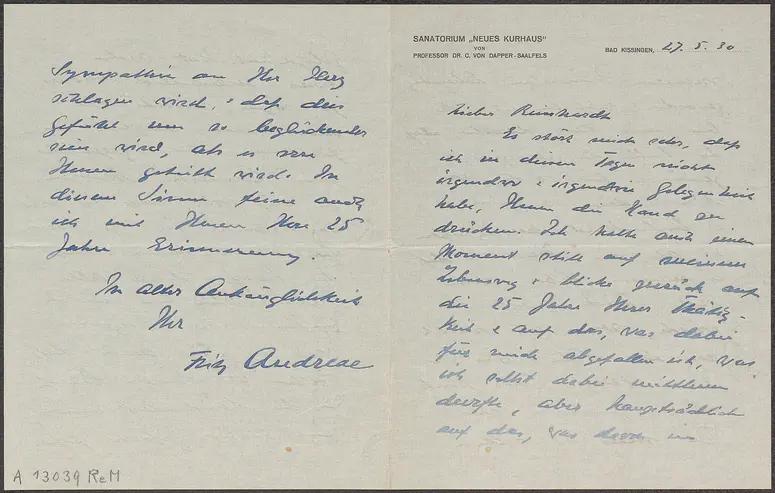 SANATORIUM „NEUES KURHAUS"
VON
PROFESSOR DR. C. VON DAPPER-SAALFELS
BAD KISSINGEN, 27. 5. 30
Lieber Reinhardt
Es stört mich sehr, daß
ich in diesen Tagen nicht
irgendwo & irgendwie Gelegenheit
habe, Ihnen die Hand zu
drücken. Ich halte auch einen
Moment still auf meinem
Lebensweg & blicke zurück auf
die 25 Jahre Ihrer Thätig-
keit & auf das, was dabei
für mich abgefallen ist, was
ich selbst dabei mitthun
durfte, aber hauptsächlich
auf das, was
Sympathie an Ihr Herz
schlagen wird, & daß dies
Gefühl um so beglückender
sein wird, als es von
Ihnen geteilt wird. In
diesem Sinne feiere auch
ich mit Ihnen Ihre 25
Jahre Erinnerung.
In alter Anhänglichkeit
Ihr
Fritz Andreae
A 13039 ReM